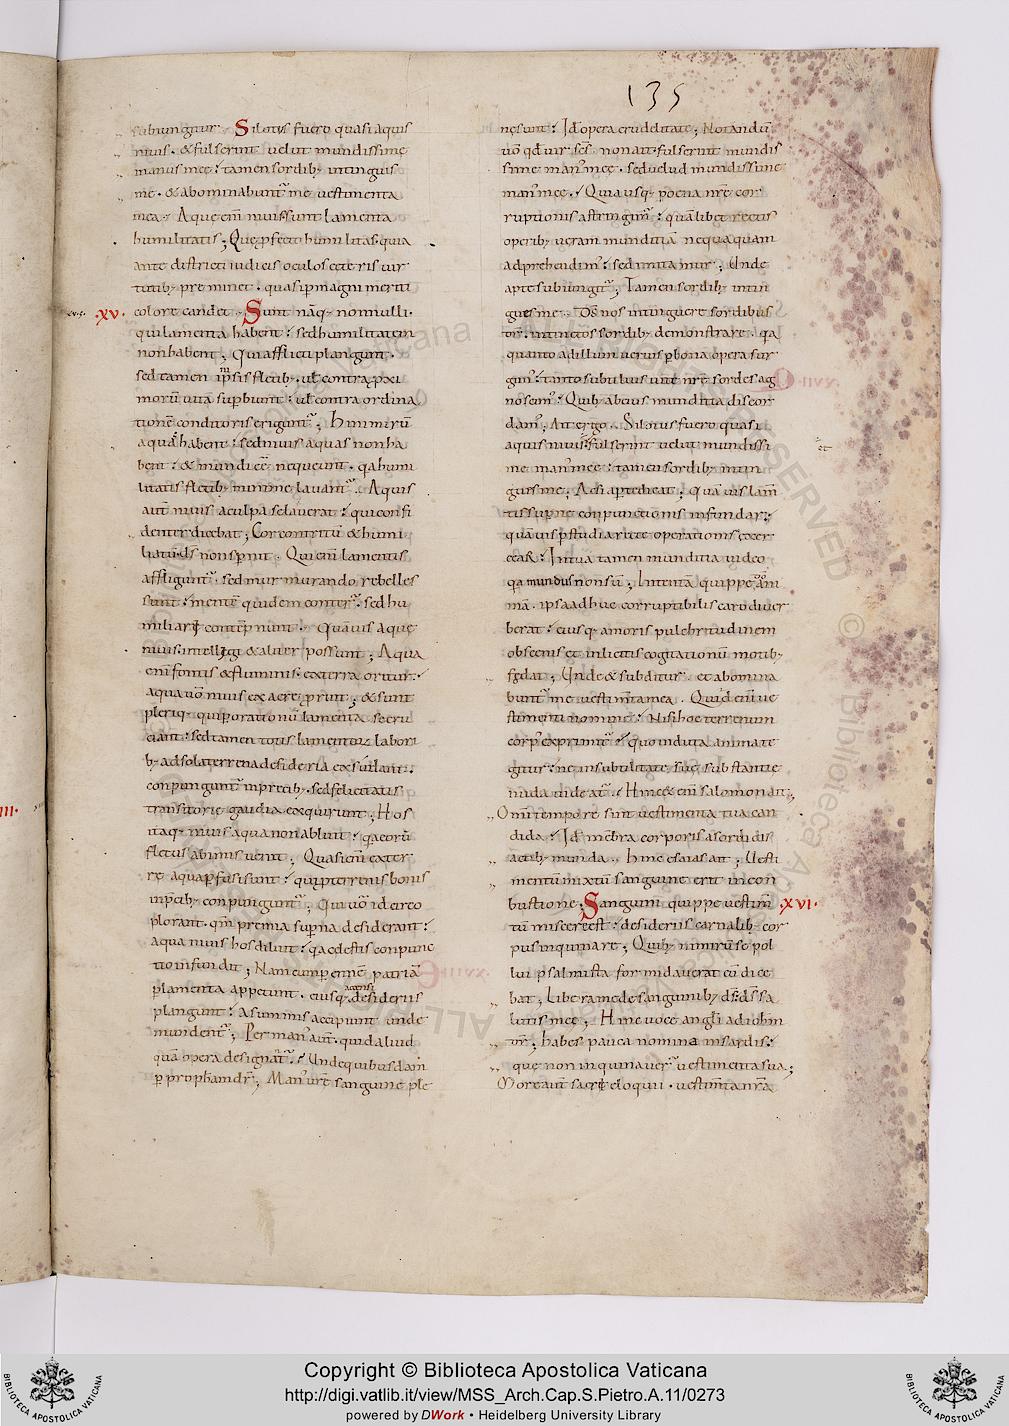 135
subiungitur. Si lotus fuero quasi aquis
niuis. & fulserint uelut mundissimę
manus meę: tamen sordib; intinguis
me. & abominabunt me uestimenta
mea. Aquę eni niuis sunt lamenta
humilitatis; Que ꝓfecto humilitas. quia
ante districti iudicis oculos ceteris uir
tutib; preminet. quasi ꝑ magni meriti
·XV· colore candet. Sunt nāq; nonnulli.
qui lamenta habent: sed humilitatem
non habent; Qui afflicti plangunt.
sed tamen in ipsis fletib;. ul contra ꝓxi
morū uitā supbiunt: ul contra ordina
tionē conditoris eriguntur; Hi nimirū
aquā habent: sed niuis aquas non ha
bent: & mundi eē nequeunt. qa humi
litatis fletib; minime lauant. Aquis
aut niuis a culpa se lauerat: qui confi
denter dicebat; Cor contritū & humi
liatū ds non spernit. Qui eni lamentis
affligunt. sed murmurando rebelles
sunt: mentē quidem conter. sed hu
miliari contempnunt. Quāuis aquę
niuis intellegi & aliter possunt; Aqua
eni fontis & fluminis. ex terra oritur.
aqua uō niuis ex aere ꝓrūit; & sunt
pleriq; qui ꝑ orationū lamenta se cru
ciant: sed tamen totis lamentorum labori
b; ad sola terrena desideria exsudant.
conpungunt in precib;. sed felicitatis
transitorię gaudia exquirunt; Hos
itaq; niuis aqua non abluit: qa eorū
fletus ab imis uenit; Quasi eni ex ter
re aqua ꝑfusi sunt: qui ꝑ terrenis bonis
in precib; conpungunt; Qui uō idcirco
plorant. qm premia supna desiderant:
aqua niuis hos diluit: qa cęlestis conpunc
tio infundit; Nam cum perennē patriā
ꝑ lamenta appetunt. eiusq; accensi desideriis
plangunt: a summis accipiunt unde
mundent; Per man aut. quid aliud
quā opera designat? Unde quibusdam
ꝑ prophetam dr; Man urę sanguine ple
nę sunt: Id opera crudelitate; Notandū
uō qd uir scs. non ait. fulserint mundis
simę man meę. sed uelud mundissimę
man meę. Quia usq; poena nrę cor
ruptionis astringim: qualibet rectis
operib; ueram munditiā nequaquam
adprehendim: sed imitamur; Unde
apte subiungit; Tamen sordib; intin
gues me. Ds nos intinguere sordibus
est intinctos sordib; demonstrare. qa
quanto ad illum uerius ꝑ bona opera sur
gim: tanto subtilius uitę nrę sordes ag
noscim: Quib; ab eius munditia discor
dam; Ait ergo. Si lotus fuero quasi
aquis niuis & fulserint uelut mundissi
mę man meę: tamen sordib; intin
et
guis me. Ac si aperte dicat; Quāuis lam
tis supne conpunctionis infundar:
quāuis ꝑ studia rectę operationis exer
cear: In tua tamen munditia uideo
qa mundus non sū; Intenta quippe
mā. ipsa adhuc corruptibilis caro diuer
berat: eiusq; amoris pulchritudinem
obscenis et inlicitis cogitationū motib;
fędat; Unde & subditur. et abomina
bunt me uestimta mea. Quid eni ue
stimenti nomine: Nisi hoc terrenum
corp exprimit? quo induta anima te
gitur: ne in subtilitate suę substantię
nuda uideat. Hinc ē eni salomon ait;
Omni tempore sint uestimenta tua can
dida: Id mēbra corporis a sordidis
actib; munda. hinc esaias ait; Uesti
mentū mixtū sanguine erit in con
bustione; Sanguini quippe uestim ·XVI·
tū miscere est: desideriis carnalib; cor
pus inquinare; Quib; nimirū se pol
lui psalmista formidauerat cū dice
bat; Libera me de sanguinib; ds: ds sa
lutis meę; Hinc uoce angli ad iohm
dr; habes pauca nomina in sardis:
quę non inquinauer uestimenta sua;
More aut sacri eloquii. uestimta nra
Copyright © Biblioteca Apostolica Vaticana
http://digi.vatlib.it/view/MSS_Arch.Cap.S.Pietro.A.11/0273
powered by DWork • Heidelberg University Library
BIBLIOTECA APOSTOLICA VATICANA
BIBLIOTECA APOSTOLICA VATICANA